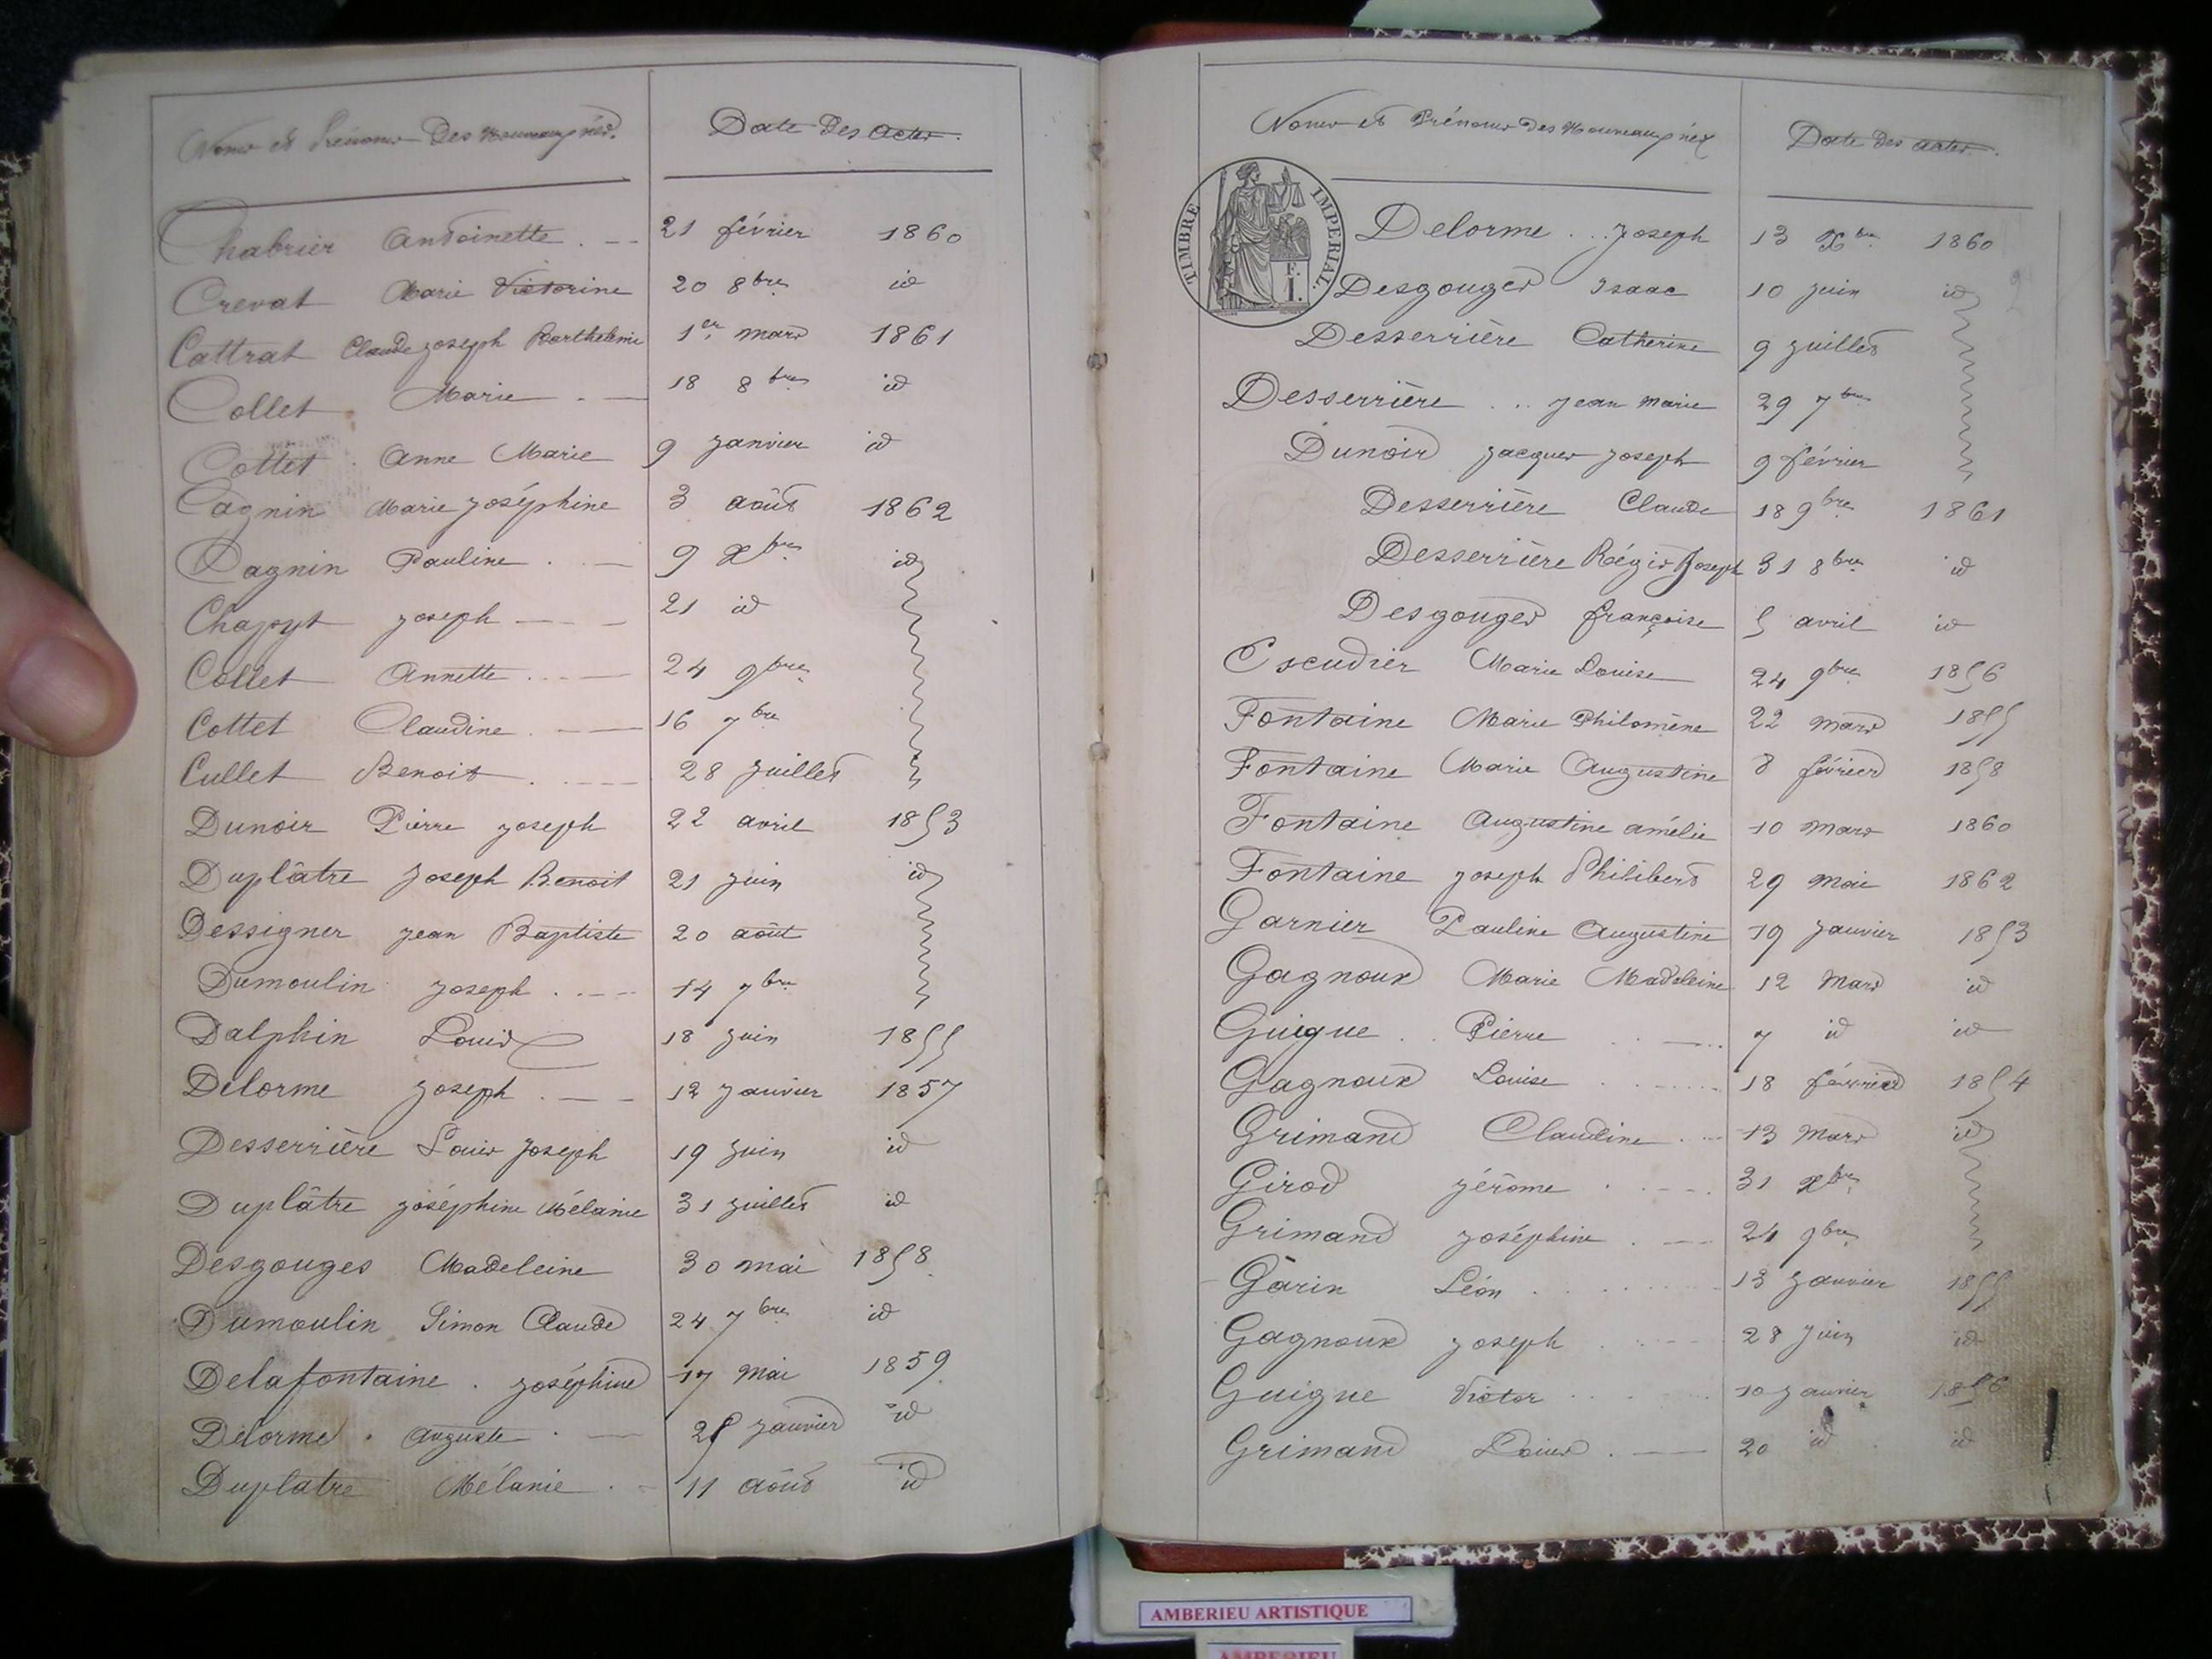 Noms et Prénoms Des Nouveaux nés. Date Des actes.
Chabrier Antoinette . — 21 février 1860
Crevat Marie Victorine 20 8bre id
Cattrat Claude joseph Barthelemi 1er mars 1861
Collet Marie . — 18 8bre id
Cottet Anne Marie 9 janvier id
Cagnin Marie joséphine 3 août 1862
Cagnin Pauline . — 9 Xbre id
Chapyt joseph — 21 id
Collet Annette . — 24 9bre
Cottet Claudine . — 16 7bre
Cullet Benoit . — 28 juillet
Dunoir Pierre joseph 22 avril 1853
Duplâtre joseph Benoit 21 juin id
Dessigner jean Baptiste 20 août
Dumoulin joseph . — 14 7bre
Dalphin Louis 18 juin 1855
Delorme joseph . — 12 janvier 1857
Desserrière Louis joseph 19 juin id
Duplâtre joséphine Mélanie 31 juillet id
Desgouges Madeleine 30 mai 1858
Dumoulin Simon Claude 24 7bre id
Delafontaine . joséphine 17 mai 1859
Delorme . auguste . — 25 janvier id
Duplatre Mélanie . - 11 août id
Noms et Prénoms Des Nouveaux nés Date des actes.
TIMBRE IMPERIAL.
E. I.
Delorme . . . joseph 13 Xbre 1860
Desgouges Isaac 10 juin id
Desserrière Catherine 9 juillet
Desserrière . .. jean marie 29 7bre
Dunoir jacques joseph 9 février
Desserrière Claude 18 9bre 1861
Desserrière Régis Joseph 31 8bre id
Desgouges françoise 5 avril id
Escudier Marie Louise 24 9bre 1856
Fontaine Marie Philomène 22 mars 1855
Fontaine Marie Augustine 8 février 1858
Fontaine Augustine amélie 10 mars 1860
Fontaine joseph Philibert 29 mai 1862
Garnier Pauline Augustine 19 janvier 1853
Gagnoux Marie Madeleine 12 mars id
Guigue . . Pierre 7 id id
Gagnoux Louise 18 février 1854
Grimand Claudine 13 mars id
Girod jérôme 31 Xbre
Grimand joséphine . — 24 9bre
Garin Léon 13 janvier 1855
Gagnoux joseph 28 juin id
Guigue Victor 10 janvier 1856
Grimand Louis . — 20 id id
AMBERIEU ARTISTIQUE
AMBERIEU